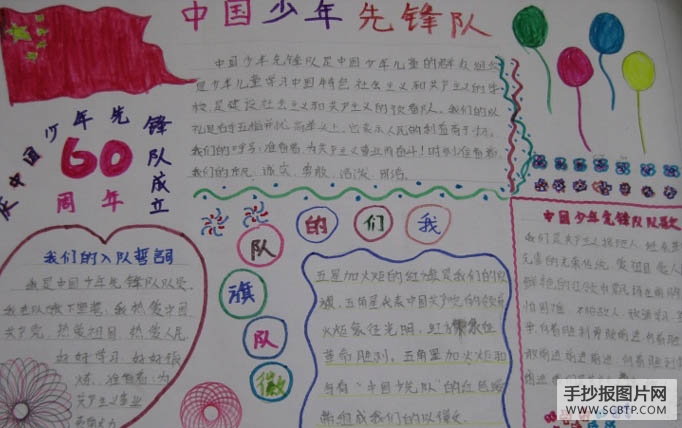 中国少年先锋队
中国少年先锋队是中国少年儿童的群众组织
是少年儿童学习中国特色社会主义和共产主义的学
校,是建设社会主义和共产主义的预备队。我们的队
礼是右手五指并拢,高举头上,它表示人民的利益高于一切。
我们的呼号:准备着,为共产主义事业而奋斗!时刻准备着。
我们的作风:诚实、勇敢、活泼、团结。
庆中国少年先锋队成立
60
周年
我们的入队誓词
我是中国少年先锋队队员,
我在队旗下宣誓:我热爱中国
共产党,热爱祖国,热爱人民,
好好学习,好好锻
炼,准备着:为
共产主义事业
我们的
队旗队徽
五星加火炬的红旗是我们的队
旗,五角星代表中国共产党的领导
火炬象征光明,红旗象征
革命胜利。五角星加火炬和
写有“中国少先队”的红色绶
带组成我们的队徽。
中国少年先锋队队歌
我们是共产主义接班人,
鲜艳的红领巾飘扬在前胸
手抄报图片网
WWW.SCBTP.COM